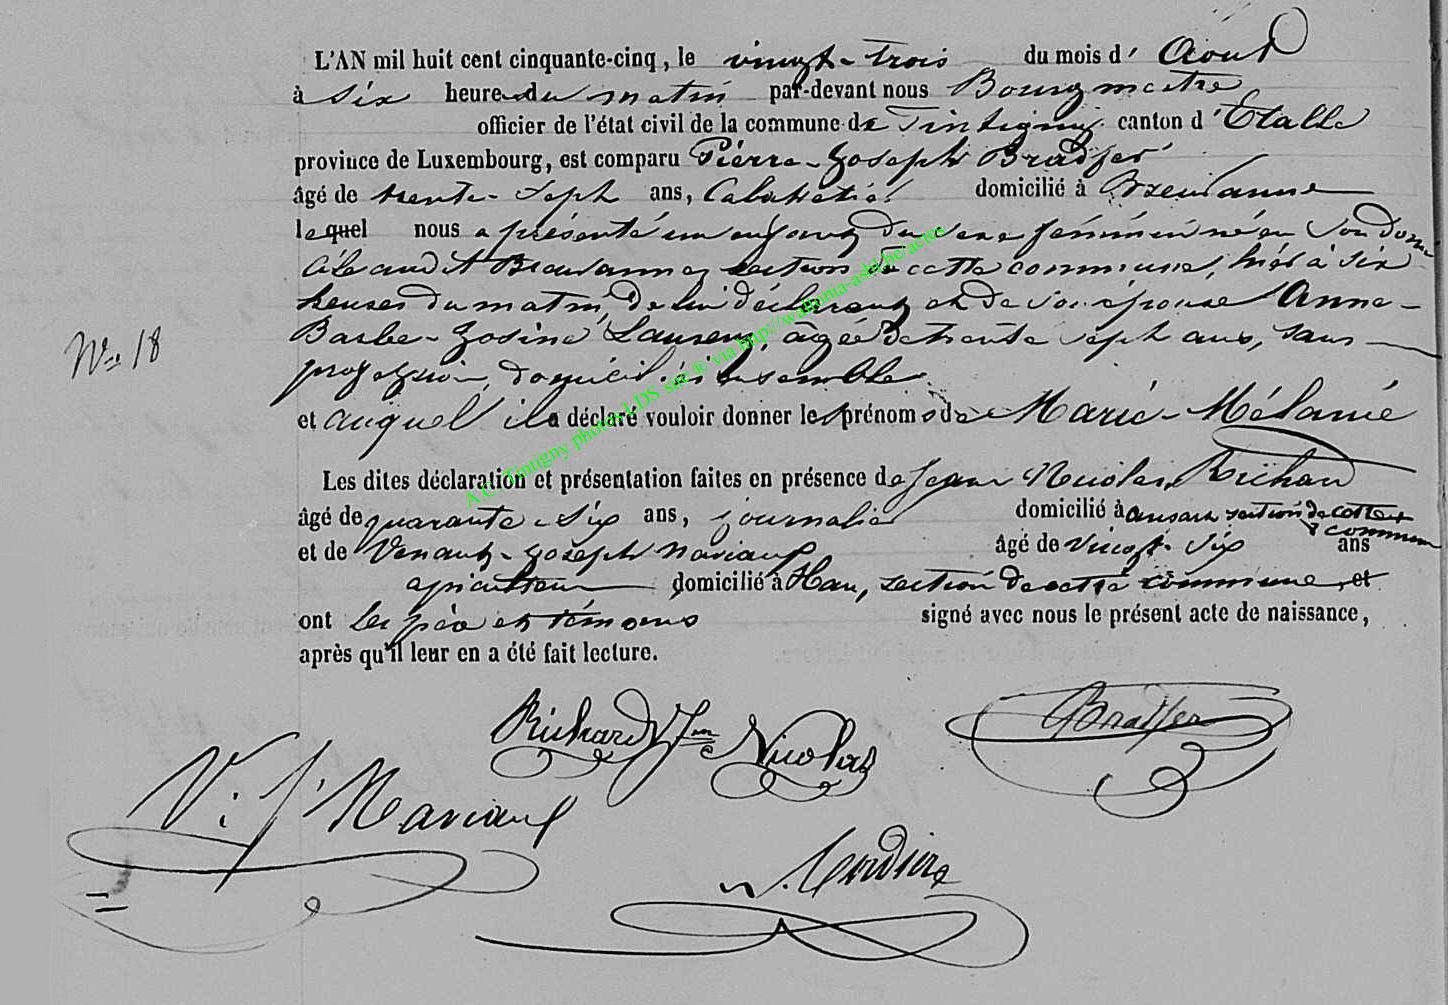 L'AN mil huit cent cinquante-cinq, le vingt-trois du mois d' Aout
à six heures du matin par-devant nous Bourgmestre
officier de l'état civil de la commune de Tintigny canton d' Etalle
province de Luxembourg, est comparu Pierre-Joseph Bradfer
âgé de trente-sept ans, Cabaretier domicilié à Breuvanne
lequel nous a présenté un enfant du sexe féminin né en son domi
cile audit Breuvanne, section de cette commune, hier à six
heures du matin, de lui déclarant et de son épouse Anne-
Barbe-Josine Laurent, âgée de trente sept ans, sans
profession, domiciliés ensemble
et auquel il a déclaré vouloir donner les prénoms de Marie-Mélanie
Nº 18
Les dites déclaration et présentation faites en présence de Jean Nicolas Richard
âgé de quarante-six ans, journalier domicilié à ansart section de cette commune
et de Venant-Joseph Naviaux âgé de vingt-six ans
apiculteur domicilié à Han, section de cette commune, et
ont les père et témoins signé avec nous le présent acte de naissance,
après qu'il leur en a été fait lecture.
Richard Jean Nicolas Bradfer
V. J. Naviaux
A.C. Tintigny photos LDS saz ® via http://wallonia-asbl.be/actes